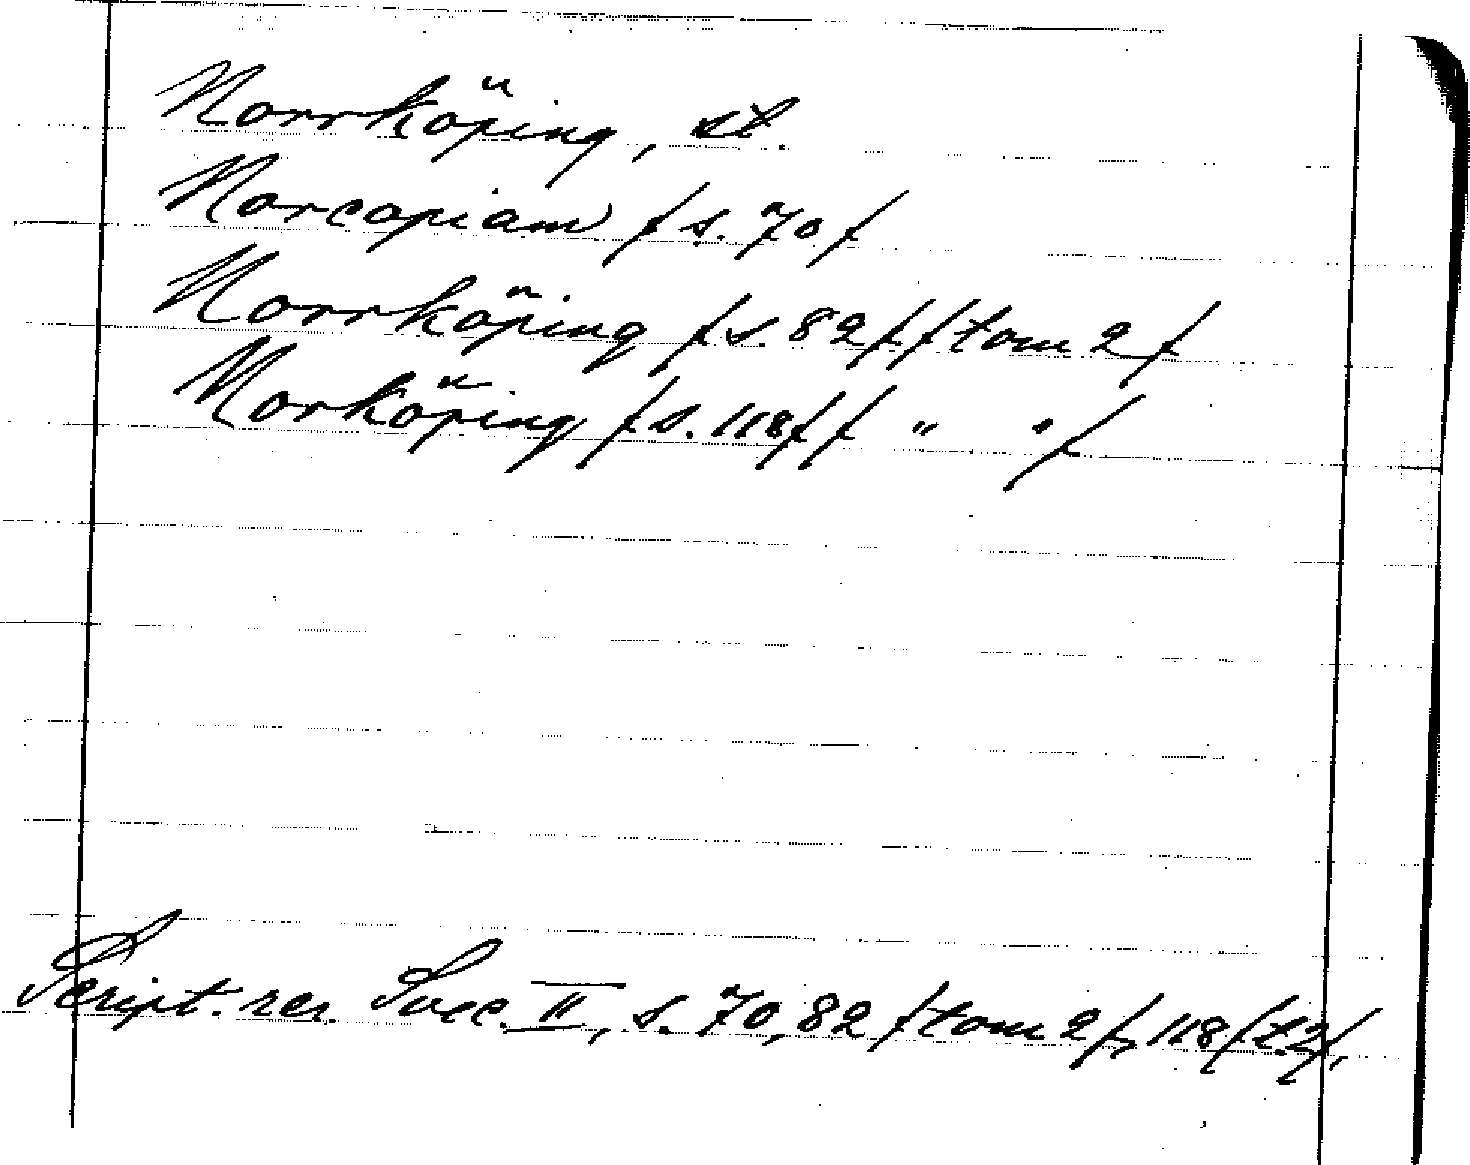 Norrköping, st.
Norcopiam /s. 70/
Norrköping /s. 82/ /tom 2/
Norköping /s. 118/ / " " /
Script. rer. Svec. II, s. 70, 82 /tom 2/, 118 /t.2/.